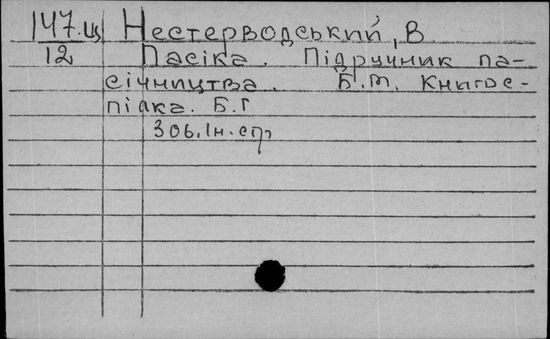 147.ц Нестерводський, В.
12 Пасіка. Підручник па-
січництва. Б.м. Книгос-
пілка. Б.Г
306. Ін. стр